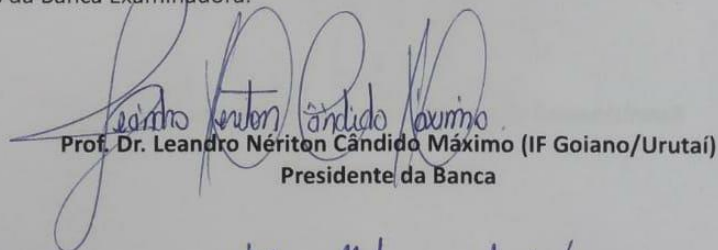 da Banca Examinadora.
Leandro Neriton Cândido Máximo.
Prof. Dr. Leandro Nériton Cândido Máximo (IF Goiano/Urutaí)
Presidente da Banca